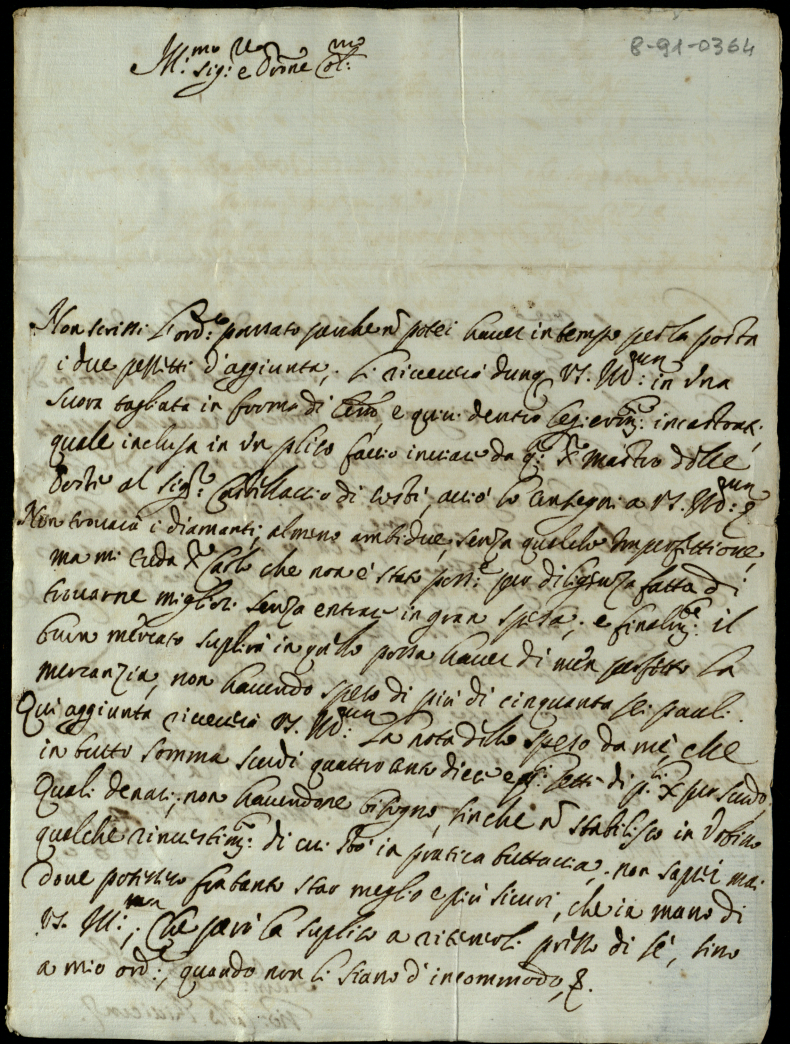 8-91-0364
Ill.mo Sig.r e Pron̄e Col.mo
Non scrissi l'ord.o passato perche nō potei haver in tempo per la posta
i due pezzetti d'aggiunta; li riceverà dunq VS. Ill.ma in una
suora tagliata in forma di e quivi dentro incastrati,
quale inclusa in un plico faccio inviare da q.o Mastro delle
Poste al Sig.r di costì, acciò lo consegni a VS. Ill.ma
Non troverà i diamanti, almeno ambidue, senza qualche Imperfettione,
ma mi creda che non è stato poss.e per diligenza fatta di
trovarne migliori senza entrare in gran spesa; e finalm.te il
buon mercato suplirà in quello possa haver di men perfetto la
mercanzia, non havendo speso di più di cinquanta sei pauli.
Qui aggiunta riceverà VS. Ill.ma la nota dello speso da me, che
in tutto somma scudi quattro cento dieci e di q.li X per scudo,
Quali denari, non havendone bisogno, sinche nō stabilisco in
qualche rinvestim.to di cui stò in pratica tuttavia, non saprei mai
dove potessero frà tanto star meglio e più sicuri, che in mano di
VS. Ill.ma; Che però la suplico a ritenerli presso di sè, sino
a mio ord.e, quando non li siano d'incommodo, &.